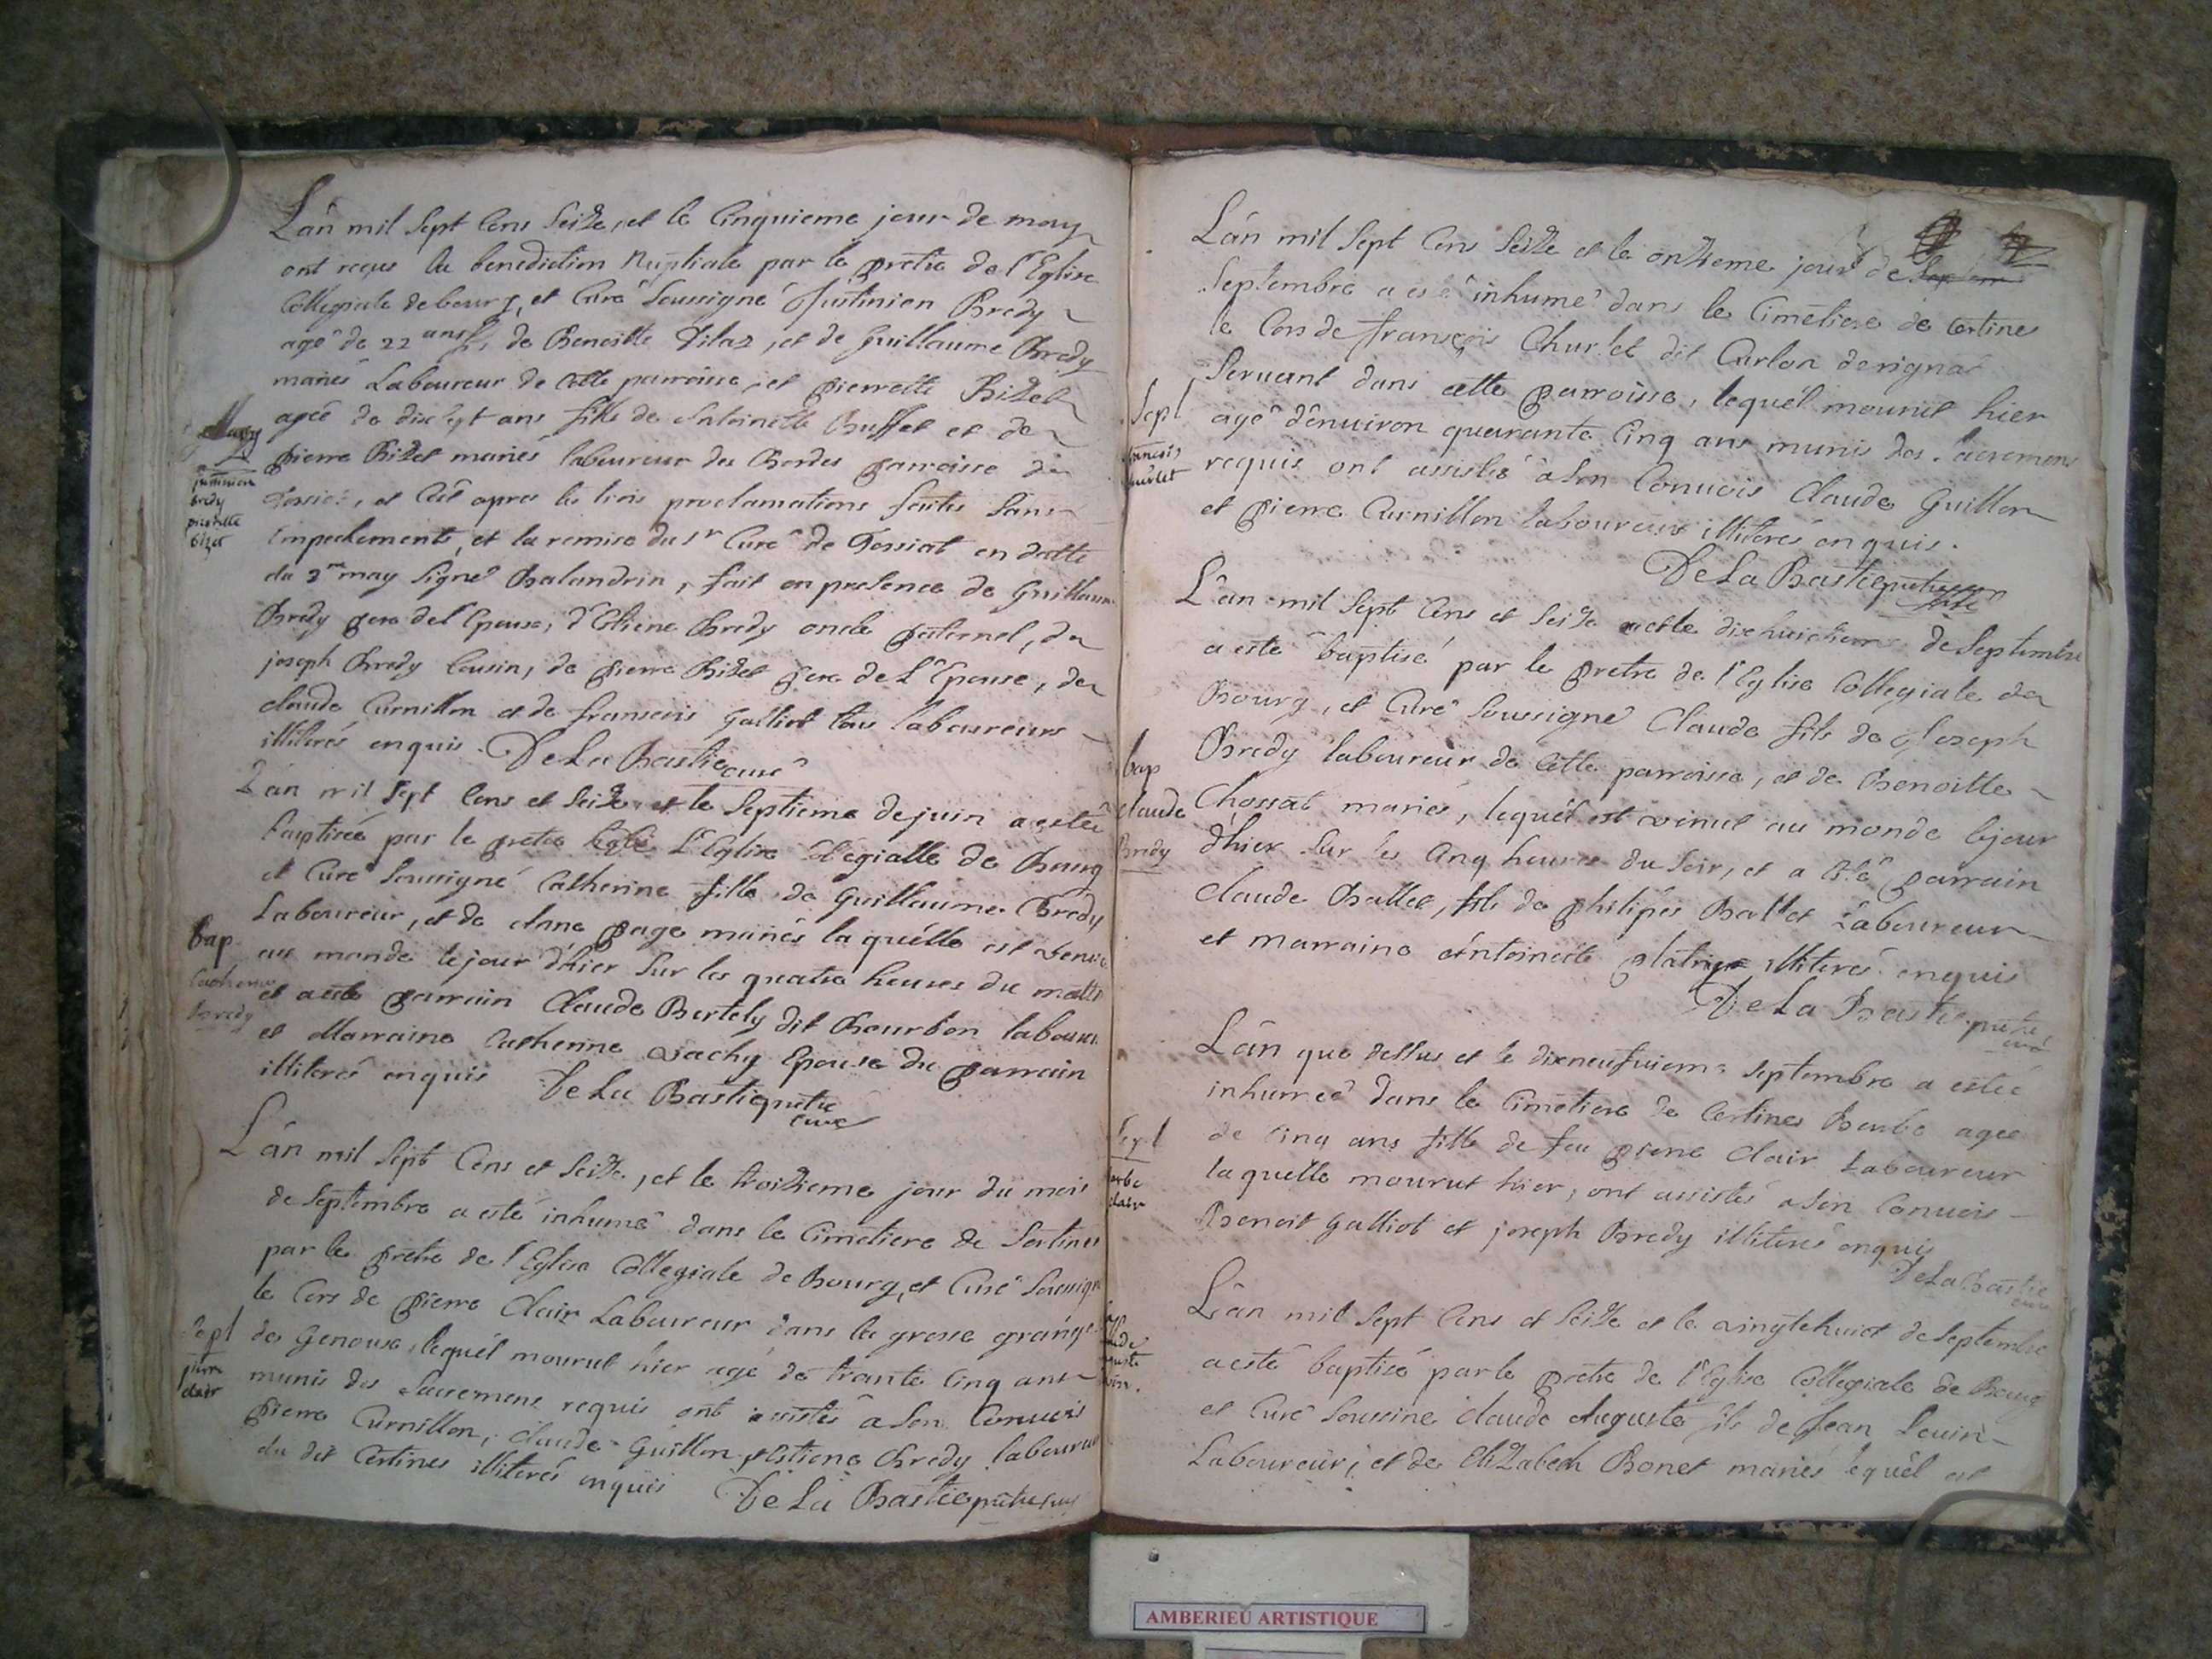 L'an mil sept cens seize, et le cinquieme jour de may
ont reçus la benediction nuptiale par le pretre de l'Eglise
Collegiale de bourg, et Curé soussigné Justinien Bredy
agé de 22 ans fils de Benoitte Pilaz, et de Guillaume Bredy
mariés Laboureur de cette parroisse, et pierrette Bizet
agée de dix sept ans fille de Antoinette Buffet et de
pierre Bizet mariés laboureur des Bordes parroisse de
et ce apres les trois proclamations faittes sans
empechements, et la remise du sr Curé de Tossiat en datte
du 3me may signé Balandrin, fait en presence de Guillaume
Bredy pere de l'Epoux, d'Estiene Bredy oncle paternel, de
joseph Bredy Cousin, de pierre Bizet pere de L'Epouse, de
claude Curnillon et de fransois Galliot tous laboureurs
illiterés enquis. De La Bastie curé
Mary
justinien
Bredy
pierrette
Bizet
L'an mil sept cens et seize et le septieme de juin a estée
baptisée par le pretre L'Eglise Collegialle de Bourg
et Curé soussigné Catherine fille de Guillaume Bredy
Laboureur, et de Anne page mariés laquelle est venue
au monde le jour d'hier sur les quatre heures du mattin
et a esté parrain Claude Bertely dit Bourbon laboureur
et Marraine Catherine Vachy Epouse du parrain
illiterés enquis De La Bastie pretre
curé
bap
Catherine
Bredy
L'an mil sept cens et seize, et le troizieme jour du mois
de septembre a esté inhumé dans le Cimetiere de Sertines
par le pretre de l'Eglise Collegiale de Bourg, et Curé soussigné
le Cors de pierre Clair Laboureur dans la grosse grange
de Genouse, lequel mourut hier agé de trante cinq ans
munis des sacremens requis ont assistés a son Convois
pierre Curnillon, claude Guillon et Estiene Bredy laboureurs
du dit Certines illiterés enquis De La Bastie pretre curé
Sept
pierre
clair
L'an mil sept cens seize et le onzieme jour de
Septembre a esté inhumé dans le Cimetiere de Certines
le Cors de fransçois Churlet dit Curlon de rignat
servant dans cette parroisse, lequel mourut hier
agé d'environ quarante cinq ans munis des sacremens
requis ont assistés a son Convois Claude Guillon
et pierre Curnillon laboureurs illiterés enquis.
De La Bastie pretre
curé
Sept
fransois
churlet
L'an mil sept cens et seize et le dixhuictieme de septembre
a esté baptisé par le pretre de l'Eglise Collegiale de
Bourg, et Curé soussigné Claude fils de Joseph
Bredy laboureur de cette parroisse, et de Benoitte
Chossat mariés, lequel est venut au monde le jour
d'hier sur les cinq heures du soir, et a esté parrain
Claude Ballet, fils de philipes Ballet Laboureur
et marraine Antoinette illiterés enquis
De La Bastie pretre
curé
bap
claude
Bredy
L'an que dessus et le dixneufuieme septembre a estée
inhumée dans le Cimetiere de Certines Barbe agée
de cinq ans fille de feu pierre Clair Laboureur
laquelle mourut hier, ont assistés a son Convois
Benoit Galliot et joseph Bredy illiterés enquis
De La Bastie
curé
Sept
barbe
clair
L'an mil sept cens et seize et le vingtehuict de septembre
a esté baptisé par le pretre de l'Eglise Collegiale de Bourg
et Curé soussiné claude Auguste fils de Jean Levin
Laboureur, et de Elizabeth Bonet mariés lequel est
AMBERIEU ARTISTIQUE